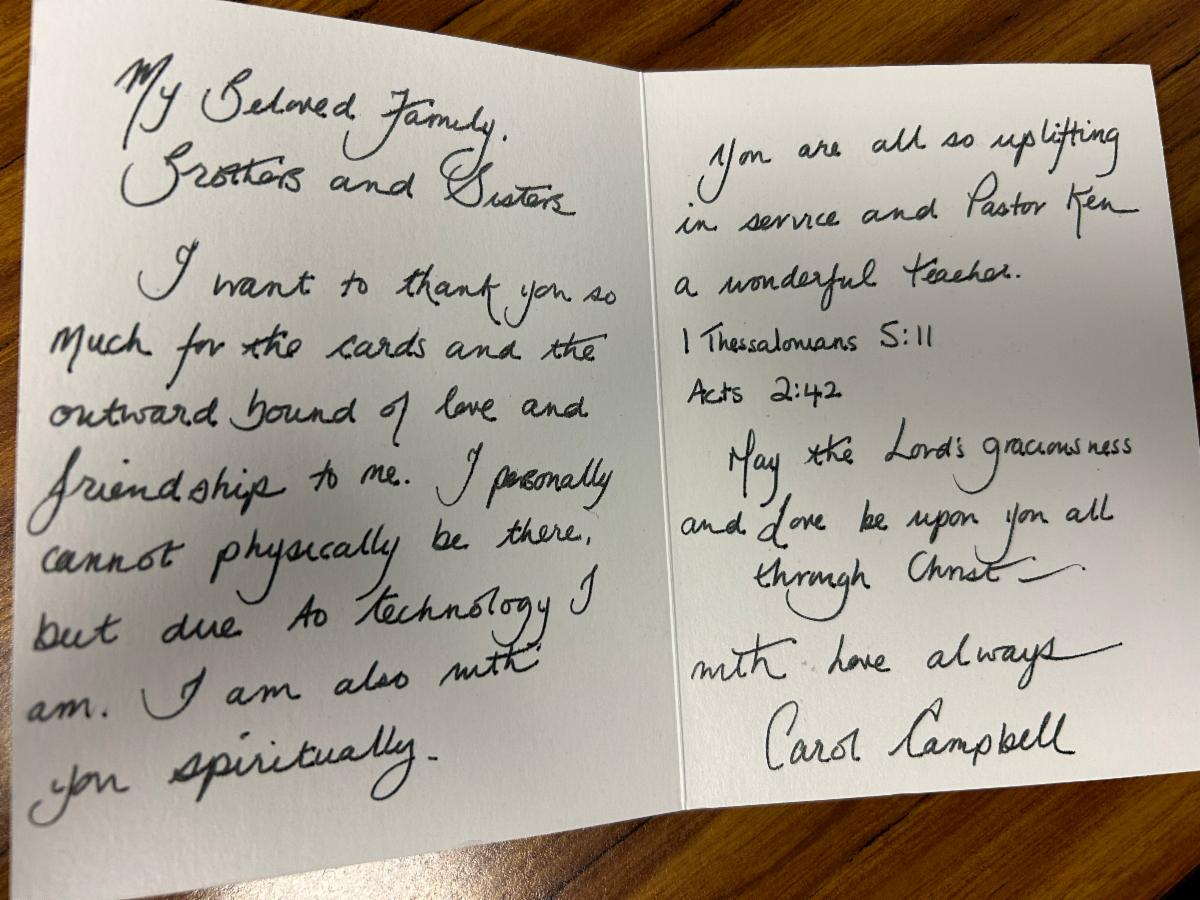 My Beloved Family.
Brothers and Sisters
I want to thank you so
much for the cards and the
outward bound of love and
friendship to me. I personally
cannot physically be there,
but due to technology I
am. I am also with
you spiritually.
You are all so uplifting
in service and Pastor Ken
a wonderful teacher.
1 Thessalonians 5:11
Acts 2:42
May the Lord's graciousness
and Love be upon you all
through Christ
with love always
Carol Campbell